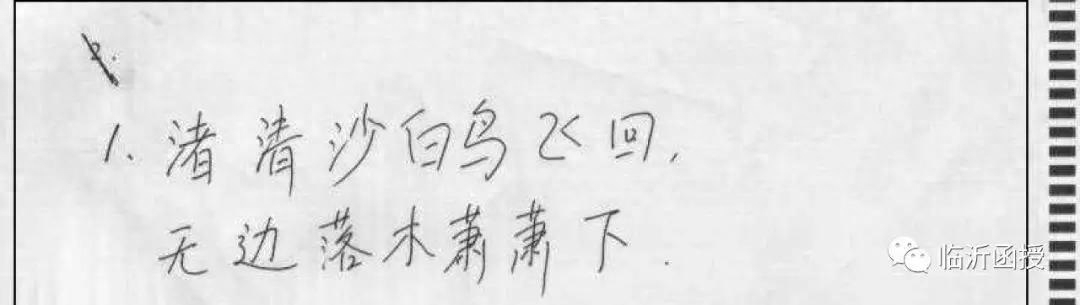 1. 渚清沙白鸟飞回,
无边落木萧萧下.
临沂函授